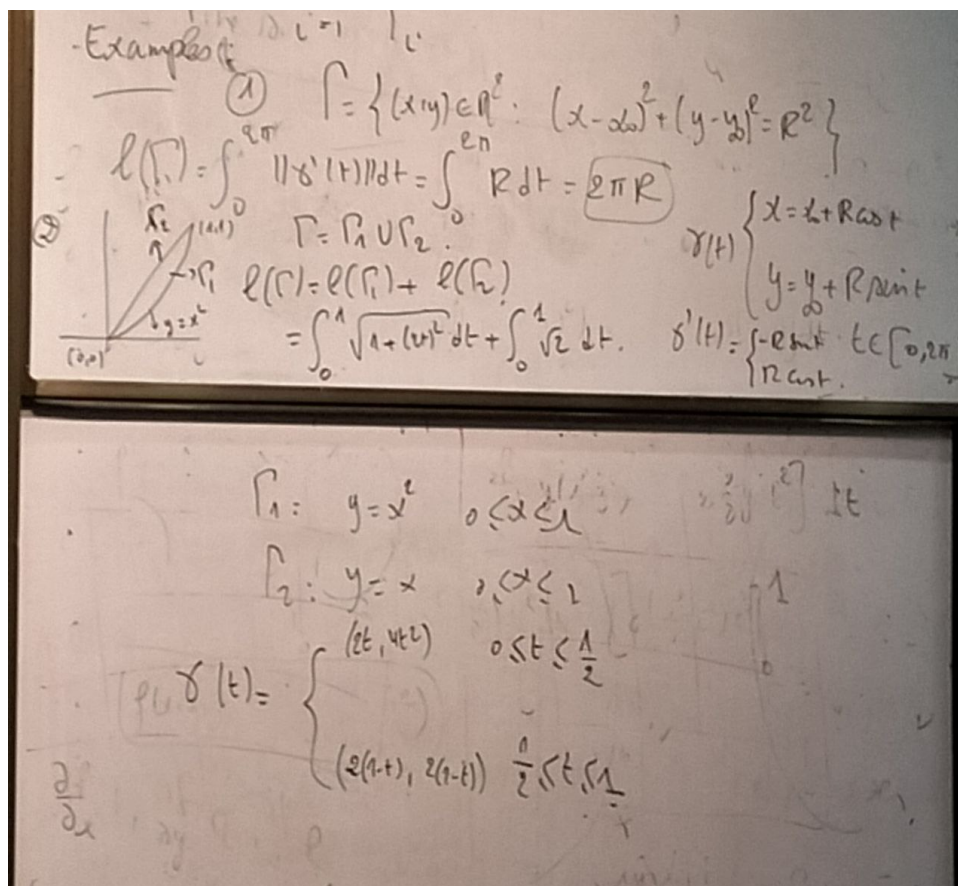 - Examples:
① Γ = {(x,y) ∈ ℝ². (x-x₀)² + (y-y₀)² = R²}
ℓ(Γ) = ∫₀^{2π} ||γ'(t)|| dt = ∫₀^{2π} R dt = 2πR
γ(t) { x = x₀ + R cos t
y = y₀ + R sin t
γ'(t) = { -R sin t t ∈ [0, 2π
R cos t.
② Γ₂ (1,1) Γ₁ y = x² (0,0)
Γ = Γ₁ ∪ Γ₂.
ℓ(Γ) = ℓ(Γ₁) + ℓ(Γ₂)
= ∫₀¹ √(1+(2t)²) dt + ∫₀¹ √2 dt.
Γ₁: y = x² 0 ≤ x ≤ 1
Γ₂: y = x 0 ≤ x ≤ 1
γ(t) = { (2t, 4t²) 0 ≤ t ≤ 1/2
(2(1-t), 2(1-t)) 1/2 ≤ t ≤ 1
∂/∂x